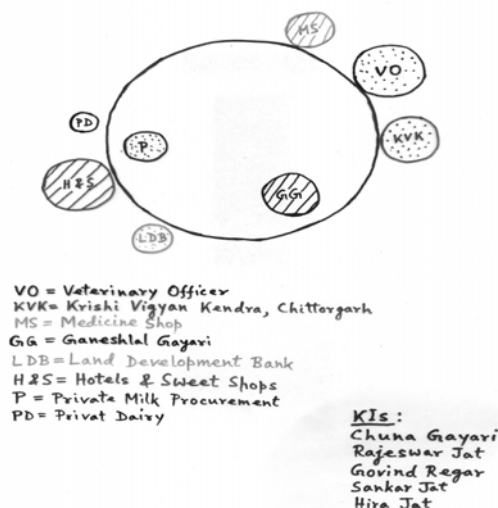 MS
VO
PD
P
KVK
H&S
GG
LDB
VO = Veterinary Officer
KVK= Krishi Vigyan Kendra, Chittorgarh
MS = Medicine Shop
GG = Ganeshlal Gayari
LDB = Land Development Bank
H&S = Hotels & Sweet Shops
P = Private Milk Procurement
PD = Privat Dairy
KIs :
Chuna Gayari
Rajeswar Jat
Govind Regar
Sankar Jat
Hira Jat